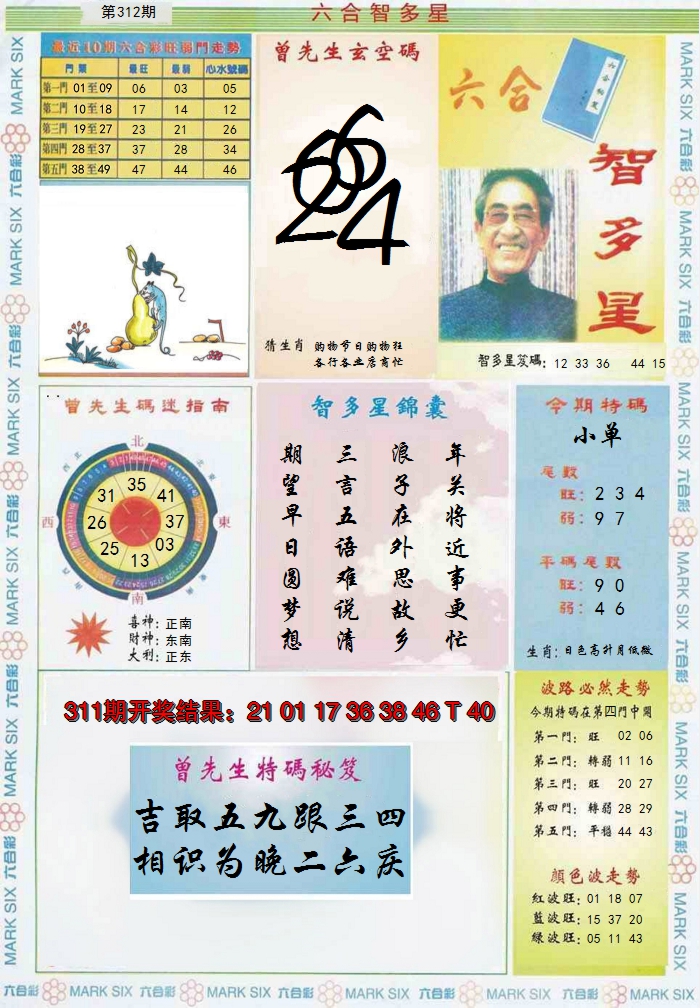 第312期
六合智多星
最近10期六合彩旺弱門走勢
門票 最旺 最弱 心水號碼
第一門 01至09 06 03 05
第二門 10至18 17 14 12
第三門 19至27 23 21 26
第四門 28至37 37 28 34
第五門 38至49 47 44 46
曾先生玄空碼
猜生肖 购物节日购物狂
各行各业店商忙
六合
智多星
智多星笈碼: 12 33 36 44 15
曾先生碼迷指南
北
西
東
南
35
31 41
26 37
25 03
13
喜神: 正南
財神: 东南
大利: 正东
智多星錦囊
年关将近事更忙
浪子在外思故乡
三言五语难说清
期望早日圆梦想
今期特碼
小单
尾數
旺: 2 3 4
弱: 9 7
平碼尾數
旺: 9 0
弱: 4 6
生肖: 日色高升月低微
311期开奖结果: 21 01 17 36 38 46 T 40
曾先生特碼秘笈
吉取五九跟三四
相识为晚二六庆
波路必然走勢
今期特碼在第四門中開
第一門: 旺 02 06
第二門: 轉弱 11 16
第三門: 旺 20 27
第四門: 轉弱 28 29
第五門: 平穩 44 43
顏色波走勢
紅波旺: 01 18 07
藍波旺: 15 37 20
綠波旺: 05 11 43
六合彩 MARK SIX 六合彩 MARK SIX 六合彩 MARK SIX 六合彩 MARK SIX 六合彩 MARK SIX